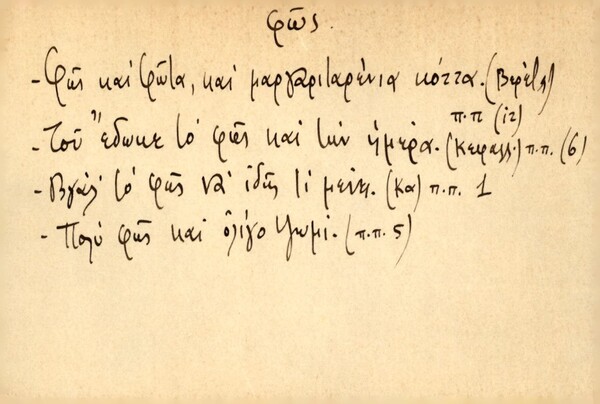 φῶς.
- Φῶς καὶ φῶτα, καὶ μαργαριταρένια κόττα. (Βερέττ)
π.π (ις)
- Τοῦ ἔδωκε τὸ φῶς καὶ τὴν ἡμέρα. (Κεφαλλ.) π.π. (6)
- Βγάλ' τὸ φῶς νὰ ἰδῇς τί μένει. (Κα) π.π. 1
- Πολὺ φῶς καὶ ὀλίγο ψωμί. (π.π. 5)